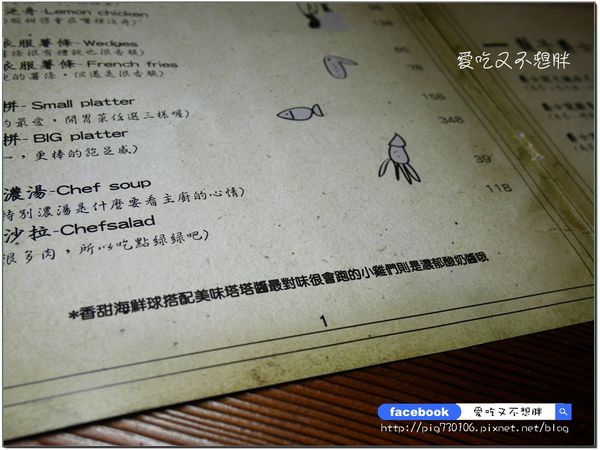 Lemon chicken
38
愛吃又不想胖
衣服薯條-Wedges
85
衣服薯條-French fries
78
的薯條，但還是很香脆)
拼-Small platter
158
的最愛，開胃菜任選三樣喔)
拼-BIG platter
348
一，更棒的飽足感)
39
濃湯-Chef soup
118
特別濃湯是什麼要看主廚的心情)
沙拉-Chefsalad
很多肉，所以吃點綠綠吧)
*香甜海鮮球搭配美味塔塔醬最對味很會跑的小雞們則是濃郁酸奶醬哦
1
facebook 愛吃又不想胖
http://pig730106.pixnet.net/blog